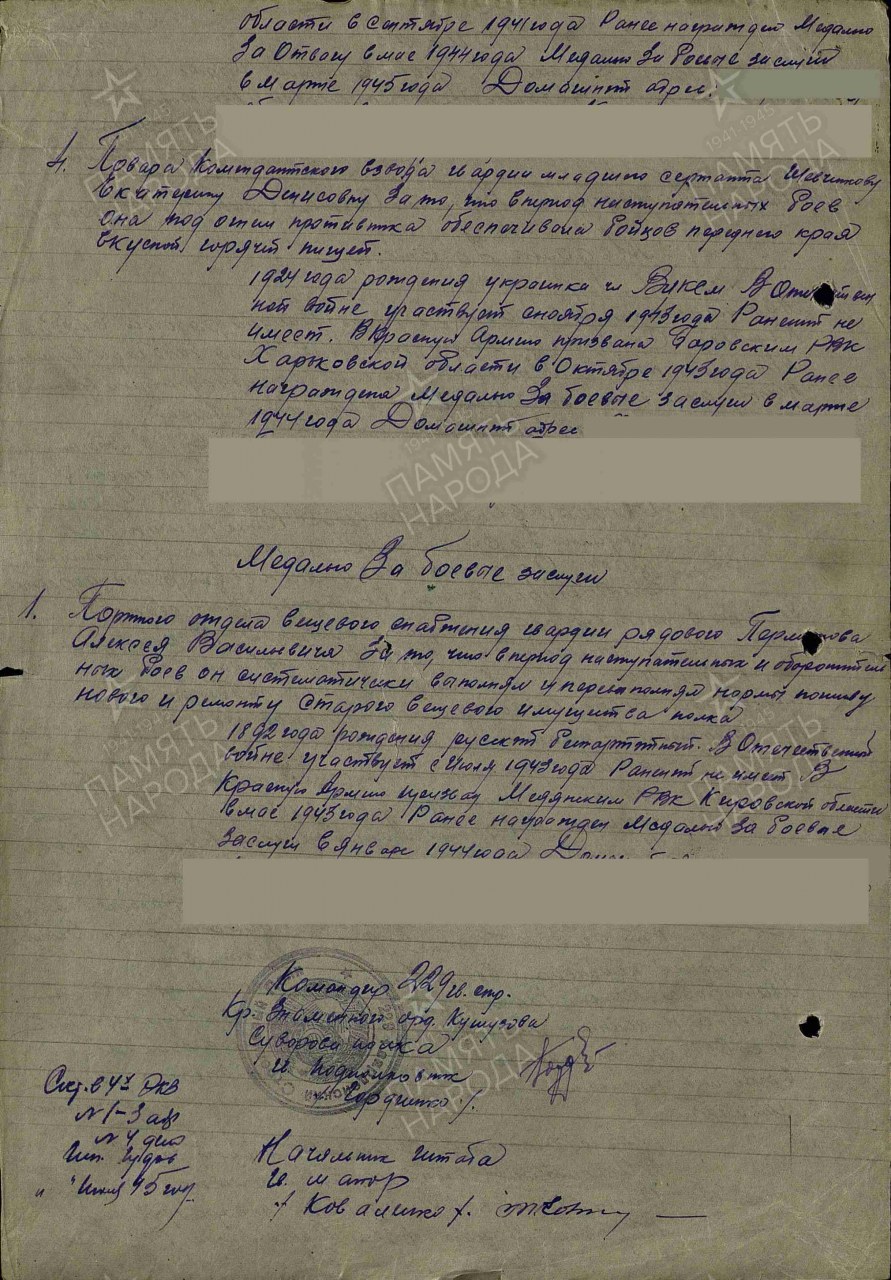 области в Сентябре 1941 года Ранее награжден Медалью
За Отвагу в мае 1944 года Медалью За Боевые заслуги
в Марте 1945 года Домашний адрес:
4. Повара Комендантского взвода гвардии младшего сержанта
Екатерину Денисовну За то, что в период наступательных боев
она под огнем противника обеспечивала бойцов переднего края
вкусной горячей пищей.
1924 года рождения украинка чл ВЛКСМ В Отечествен
ной войне участвует с ноября 1943 года Ранений не
имеет. В Красную Армию призвана РВК
Харьковской области в Октябре 1943 года Ранее
награждена Медалью За боевые заслуги в марте
1944 года Домашний адрес
Медалью За боевые заслуги
1. Портного отдела вещевого снабжения гвардии рядового
Алексея Васильевича За то, что в период наступательных и оборонитель
ных боев он систематически выполнял и перевыполнял нормы пошиву
нового и ремонту старого вещевого имущества полка
1892 года рождения русский беспартийный. В Отечественной
войне участвует с Июля 1943 года Ранений не имеет В
Красную Армию призван Медянским РВК Кировской области
в мае 1943 года Ранее награжден Медалью За боевые
заслуги в январе 1944 года
Командир 229 гв. стр.
Кр. Знаменного орд. Кутузова
Суворова полка
гв. подполковник
/ Гордиенко /.
Начальник штаба
гв. майор
/ Коваленко /.
N 1-3 адр
N 4 дело
" Июля 45 год.
ПАМЯТЬ НАРОДА
1941-1945